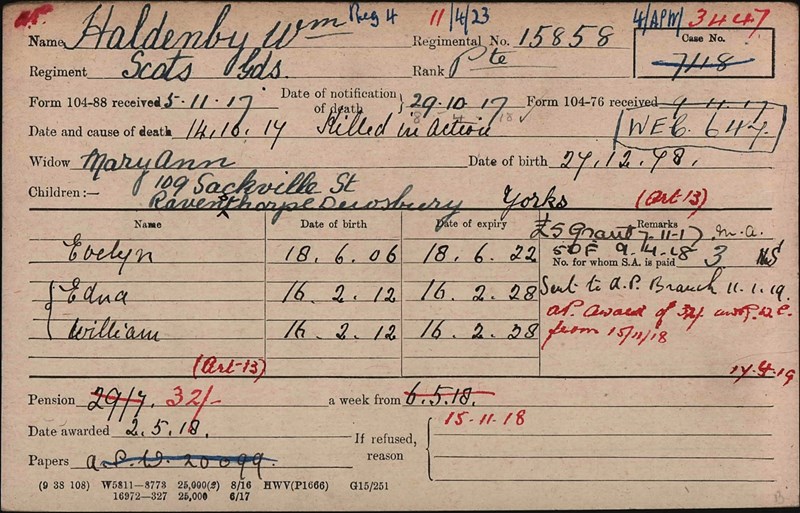 A.P. Reg 4 11/4/23 4/APW/3447
Name Haldenby Wm Regimental No. 15858 Case No.
Regiment Scots Gds. Rank Pte 7118
Form 104-88 received 5-11-17 Date of notification of death } 29.10.17 Form 104-76 received 9.11.17
Date and cause of death 14.10.17 Killed in Action WEB. 647.
Widow Mary Ann Date of birth 27.12.78.
Children:— 109 Sackville St
Ravensthorpe Dewsbury Yorks (Art-13)
Name Date of birth Date of expiry Remarks
£5 Grant 7-11-17. M.A.
Evelyn 18.6.06 18.6.22 No. for whom S.A. is paid 3
Edna 16.2.12 16.2.28 Sent to A.P. Branch 11.1.19.
William 16.2.12 16.2.28 AP. award of 32/-
from 15/11/18
(Art-13) 17.4.19
Pension 29/7. 32/- a week from 6.5.18.
Date awarded 2.5.18. If refused, reason 15-11-18
Papers a.P.W. 20099
(9 38 108) W5811—8773 25,000(2) 8/16 HWV(P1666) G15/251
16972—327 25,000 6/17